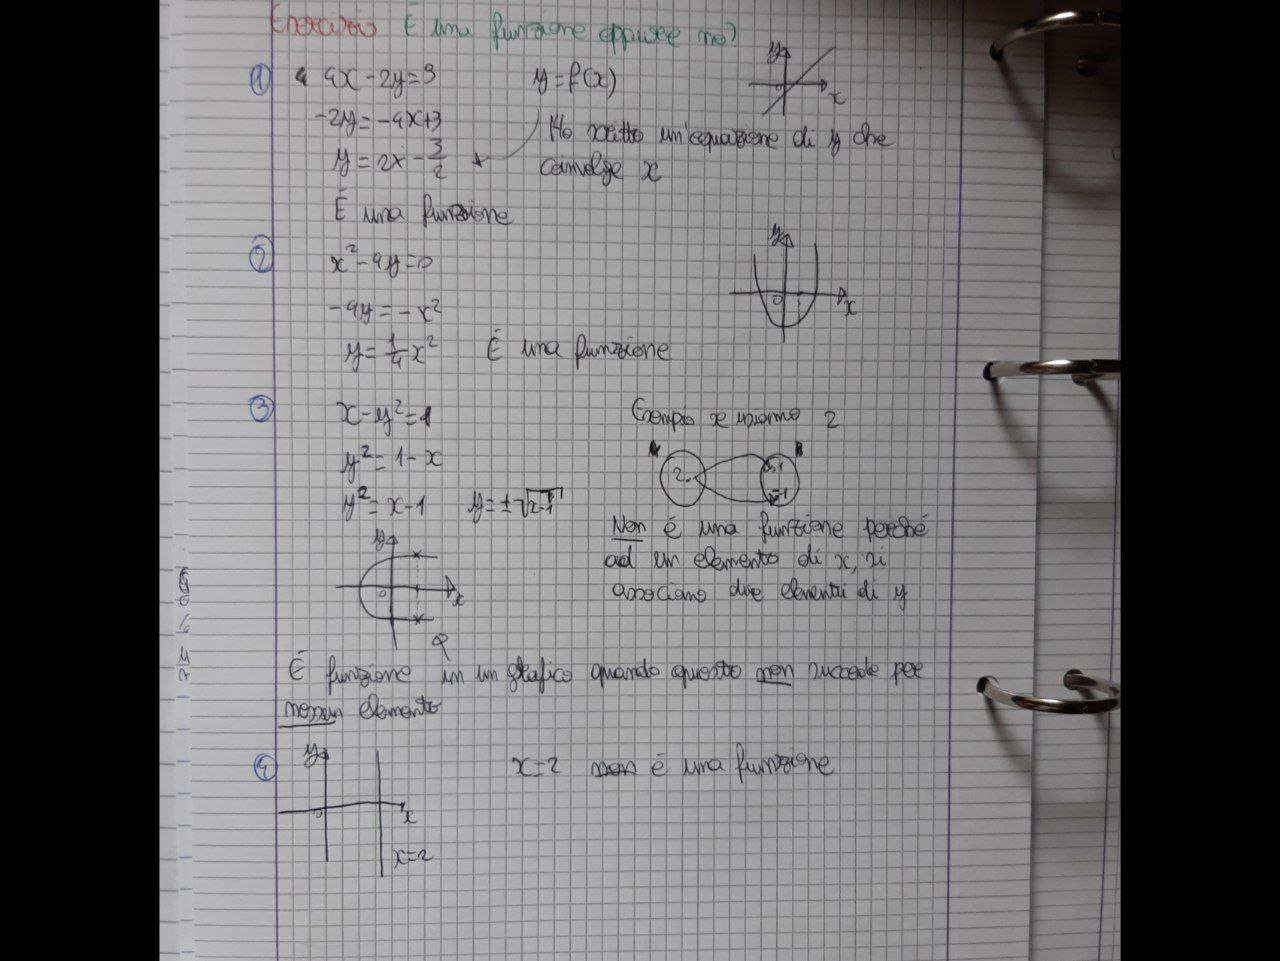 Esercizio È una funzione oppure no?
① 4x - 2y = 3 y = f(x) y x
-2y = -4x+3
Ho scritto un'equazione di y che
y = 2x - 3/2 coinvolge x
È una funzione
② x² - 4y = 0 y 0 x
-4y = -x²
y = 1/4 x² È una funzione
③ x - y² = 1 Esempio se usiamo 2
y² = 1 - x A B
2. .1
.-1
y² = x - 1 y = ±√x-1
Non è una funzione perché
ad un elemento di x, si
associano due elementi di y
y 0 x
È funzione in un grafico quando questo non succede per
nessun elemento
④ y 0 x x=2 non è una funzione
x=2